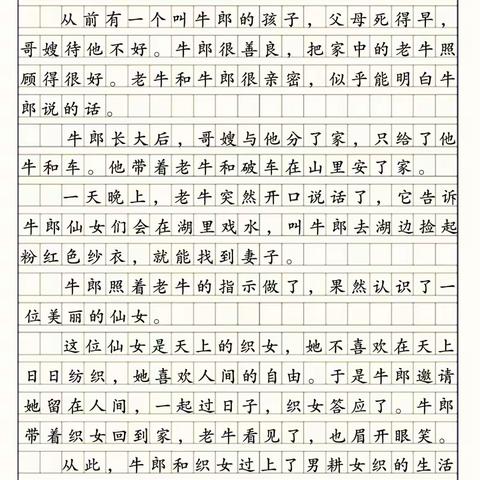 从前有一个叫牛郎的孩子，父母死得早，
哥嫂待他不好。牛郎很善良，把家中的老牛照
顾得很好。老牛和牛郎很亲密，似乎能明白牛
郎说的话。
牛郎长大后，哥嫂与他分了家，只给了他
牛和车。他带着老牛和破车在山里安了家。
一天晚上，老牛突然开口说话了，它告诉
牛郎仙女们会在湖里戏水，叫牛郎去湖边捡起
粉红色纱衣，就能找到妻子。
牛郎照着老牛的指示做了，果然认识了一
位美丽的仙女。
这位仙女是天上的织女，她不喜欢在天上
日日纺织，她喜欢人间的自由。于是牛郎邀请
她留在人间，一起过日子，织女答应了。牛郎
带着织女回到家，老牛看见了，也眉开眼笑。
从此，牛郎和织女过上了男耕女织的生活